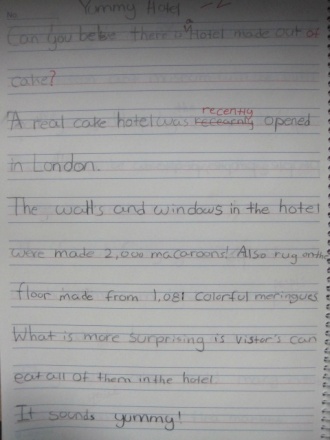 Yummy Hotel
Can you beleve there is a Hotel made out of
cake?
recently
A real cake hotel was opened
in London.
The walls and windows in the hotel
were made 2,000 macaroons! Also rug on the
floor made from 1,081 colorful meringues
What is more surprising is vistor's can
eat all of them in the hotel
It sounds yummy!